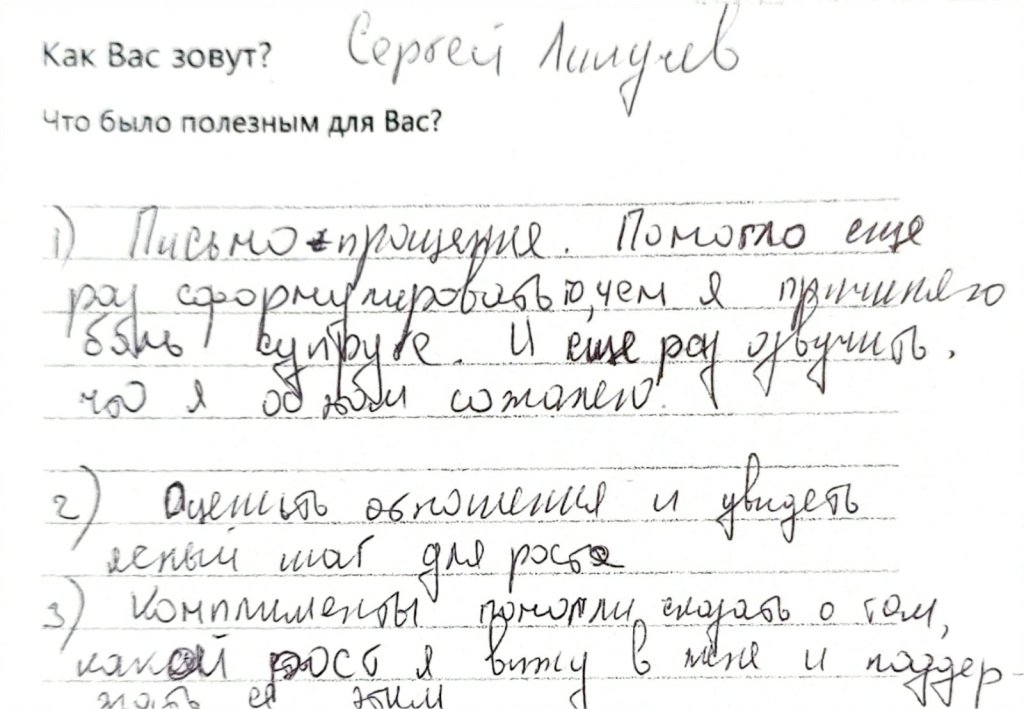 Как Вас зовут? Сергей
Что было полезным для Вас?
1) Письмо прощения. Помогло еще
раз сформулировать то, чем я причиняю
боль супруге. И еще раз озвучить,
что я об этом сожалею.
2) Оценить отношения и увидеть
ясный шаг для роста
3) Комплименты помогли сказать о том,
какой рост я вижу в жене и поддер-
жать её этим